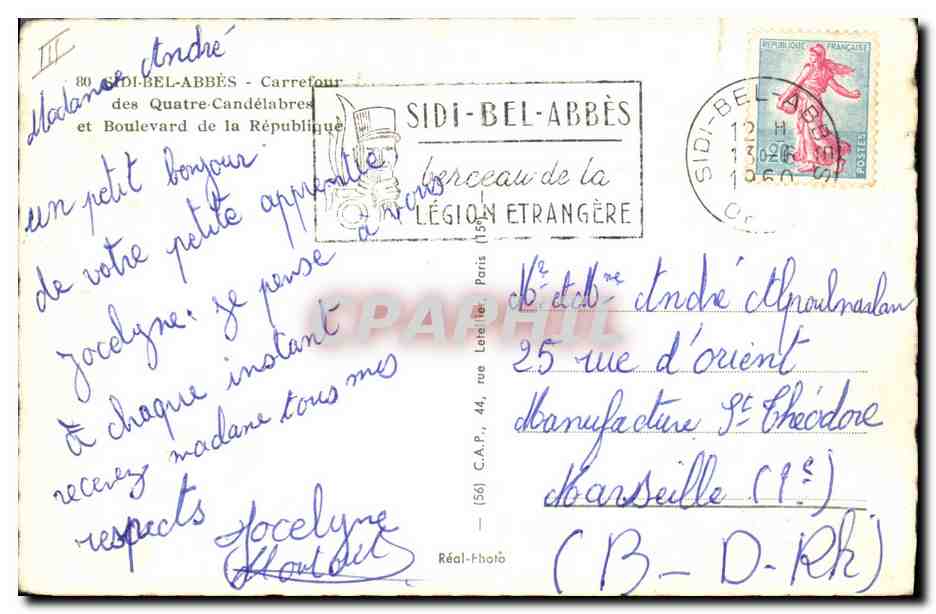 III
80 SIDI-BEL-ABBÈS - Carrefour
des Quatre-Candélabres
et Boulevard de la République
Madame André
un petit bonjour
de votre petite apprentie
Jocelyne. je pense à vous
à chaque instant
recevez madame tous mes
respects
Jocelyne
SIDI-BEL-ABBÈS
berceau de la
LÉGION ETRANGÈRE
SIDI-BEL-ABBES
12 H
13
1960
REPUBLIQUE FRANÇAISE
POSTES
CPAPHIL
(56) C.A.P., 44, rue Letellier, Paris (15e)
Réal-Photo
Mr et Mme André
25 rue d'orient
Manufacture St Théodore
Marseille (1e)
(B-D-Rh)